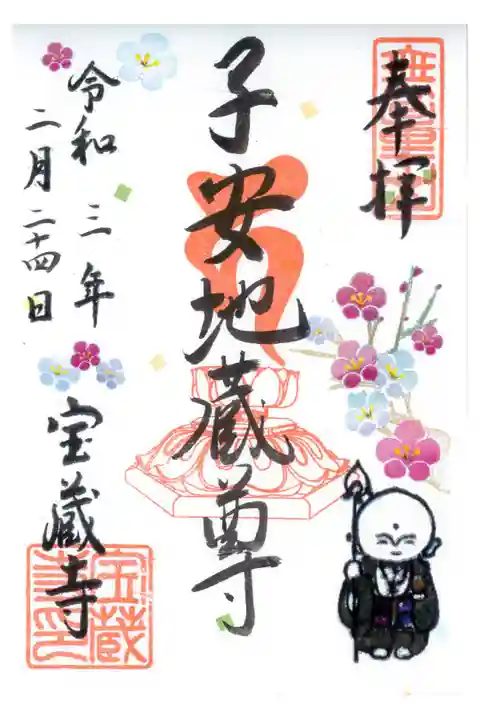 奉拝
子安地蔵尊
令和三年
二月二十四日
宝蔵寺
宝蔵寺印